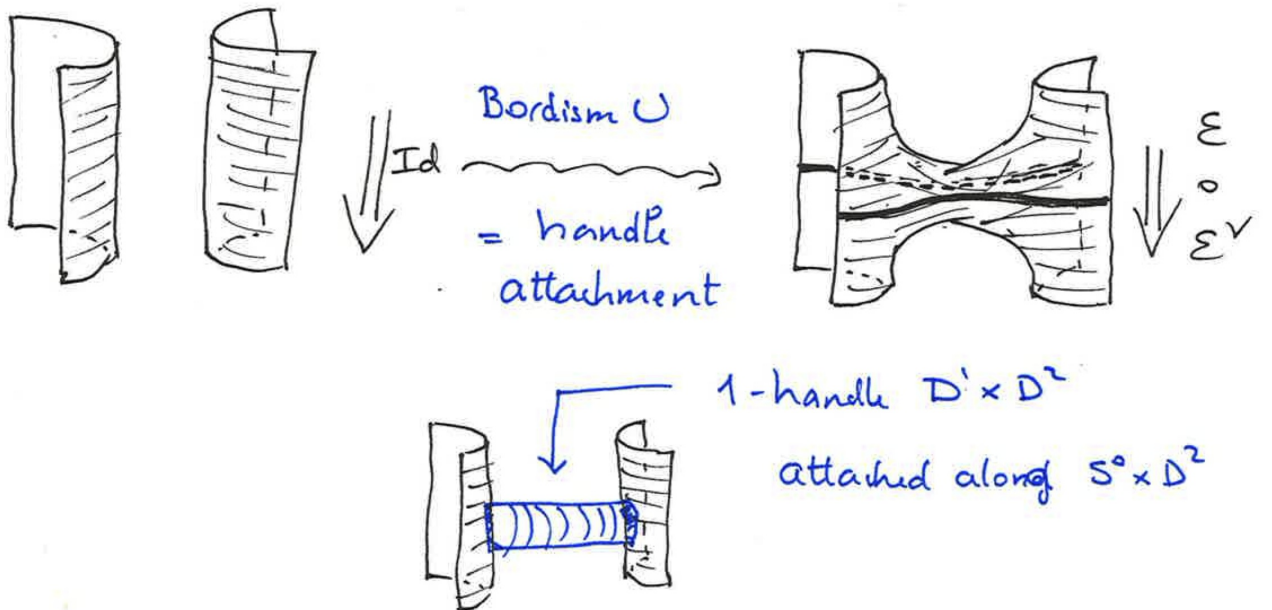 Id
Bordism U
= handle
attachment
ε
∘
ε^v
1-handle D^1 × D^2
attached along S^0 × D^2